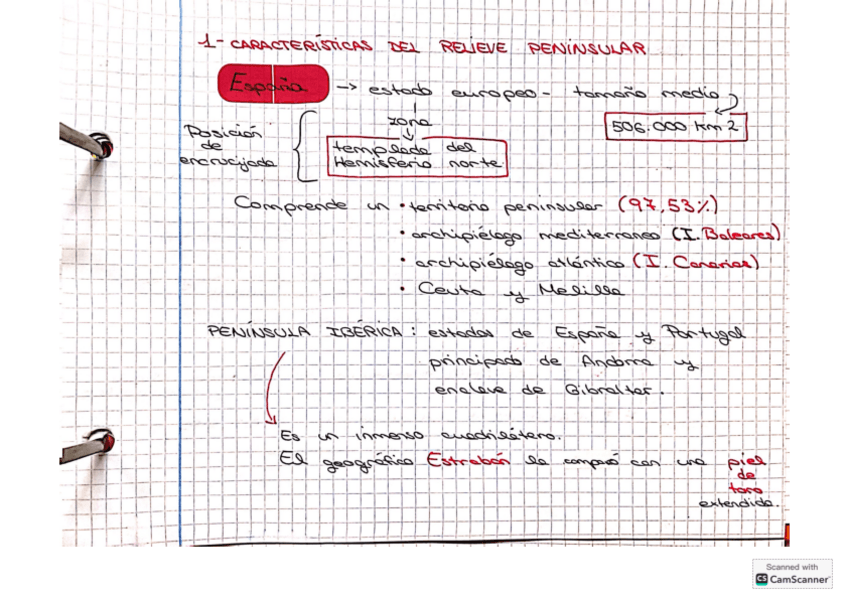 1- CARACTERÍSTICAS DEL RELIEVE PENÍNSULAR
España → estado europeo - tamaño medio
506.000 km2
zona
templada del
Hemisferio norte
Posición
de
encrucijada
Comprende un • territorio peninsular (97,53%)
• archipiélago mediterraneo (I. Baleares)
• archipiélago atlántico (I. Canarias)
• Ceuta y Melilla
PENÍNSULA IBÉRICA: estados de España y Portugal
principado de Andorra y
enclave de Gibralter.
Es un inmenso cuadrilátero.
El geográfico Estrabón la comparó con una piel
de
toro
extendida.
Scanned with
CS CamScanner